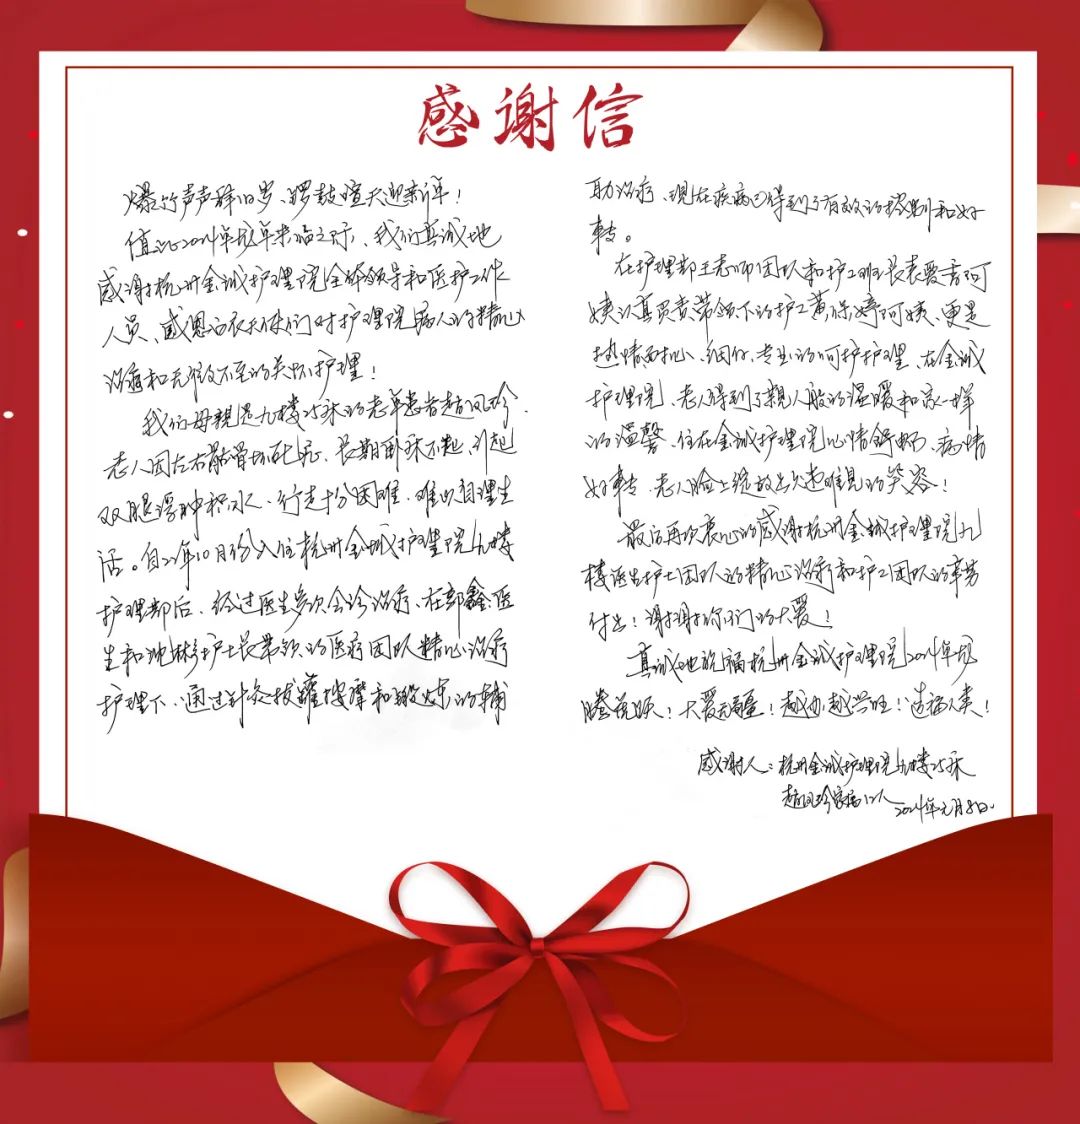 感谢信
爆竹声声辞旧岁、锣鼓喧天迎新年！
值此2024年龙年来临之际、我们真诚地
感谢杭州金诚护理院全体领导和医护工作
人员、感恩白衣天使们对护理院病人的精心
治疗和无微不至的关怀护理！
我们母親是九楼25床的老年患者趙凤珍、
老人因左右骶骨坏死、長期卧床不起、引起
双腿浮肿积水、行走十分困难、难以自理生
活。自22年10月份入住杭州金诚护理院九楼
护理部后、经过医生多次会诊治疗、在郭鑫医
生和沈彬护士長带领的医疗团队精心治疗
护理下、通过针灸拔罐按摩和锻炼的辅
助治疗、现在疾病已得到了有效的控制和好
转。
在护理部王老师团队和护工班長表爱香阿
姨认真负责带领下的护工黄保婷阿姨、更是
热情耐心、细仔、专业的呵护护理、在金诚
护理院、老人得到了親人般的温暖和家一样
的温馨、住在金诚护理院心情舒畅、病情
好转、老人脸上绽放出久违难見的笑容！
最后再次衷心的感谢杭州金诚护理院九
楼医生护士团队的精心治疗和护工团队的辛劳
付出！谢谢你们的大爱！
真诚地祝福杭州金诚护理院2024年龙
腾虎跃！大爱无疆！越办越兴旺！造福人类！
感谢人：杭州金诚护理院九楼25床
趙凤珍家属12人
2024年元月8日.